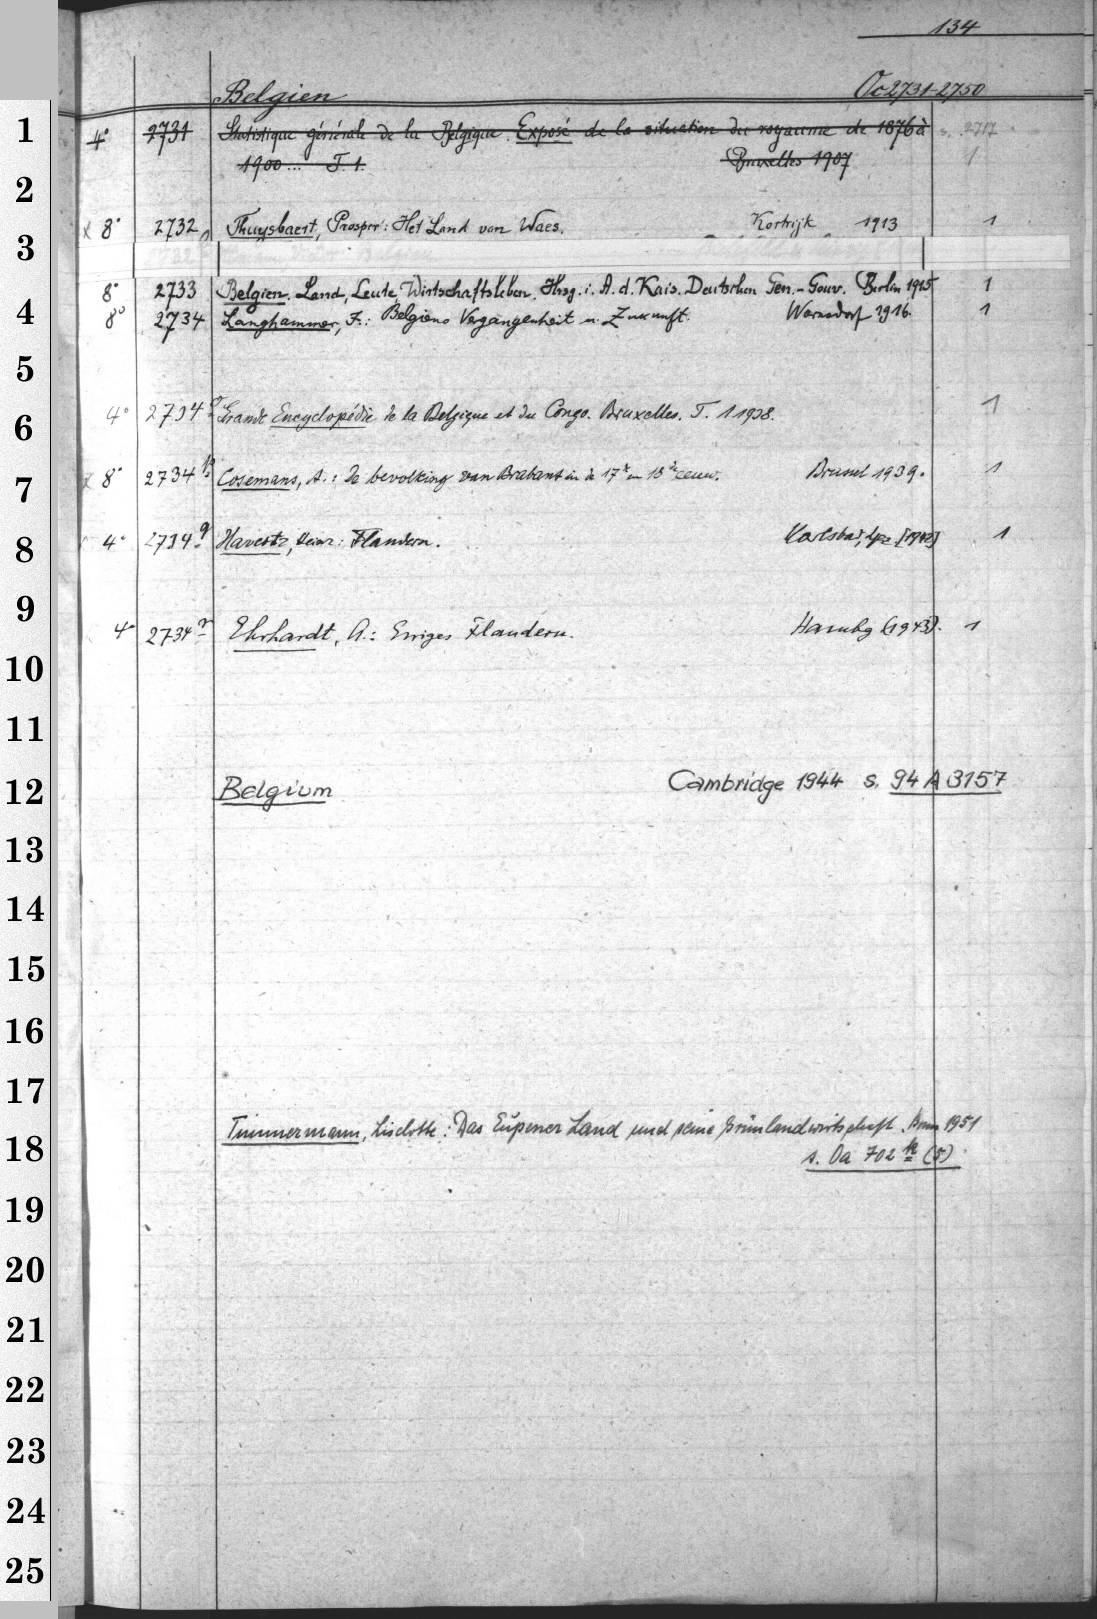 134
Belgien Oc 2731-2750
4° 2731 Statistique générale de la Belgique. Exposé de la situation du royaume de 1876 à s. 2717
1900... T. 1. Bruxelles 1907 1
x 8° 2732 Thuysbaert, Prosper: Het Land van Waes. Kortrijk 1913 1
8° 2733 Belgien. Land, Leute, Wirtschaftsleben. Hrsg. i. A. d. Kais. Deutschen Gen.-Gouv. Berlin 1915 1
8° 2734 Langhammer, F.: Belgiens Vergangenheit u. Zukunft. Warnsdorf 1916. 1
4° 2734 Grande Encyclopédie de la Belgique et du Congo. Bruxelles. T. 1 1938. 1
x 8° 2734 Cosemans, A.: De bevolking van Brabant in de 17e en 18e eeuw. Brussel 1939. 1
4° 2734 Havertz, Heinr.: Flandern. Karlsbad, Lpz. [1942] 1
4° 2734 Ehrhardt, A.: Ewiges Flandern. Hambg (1943). 1
Belgium Cambridge 1944 s. 94 A 3157
Timmermann, Liselotte: Das Eupener Land und seine Grünlandwirtschaft. Bonn 1951
s. Oa 702 (5)
1
2
3
4
5
6
7
8
9
10
11
12
13
14
15
16
17
18
19
20
21
22
23
24
25